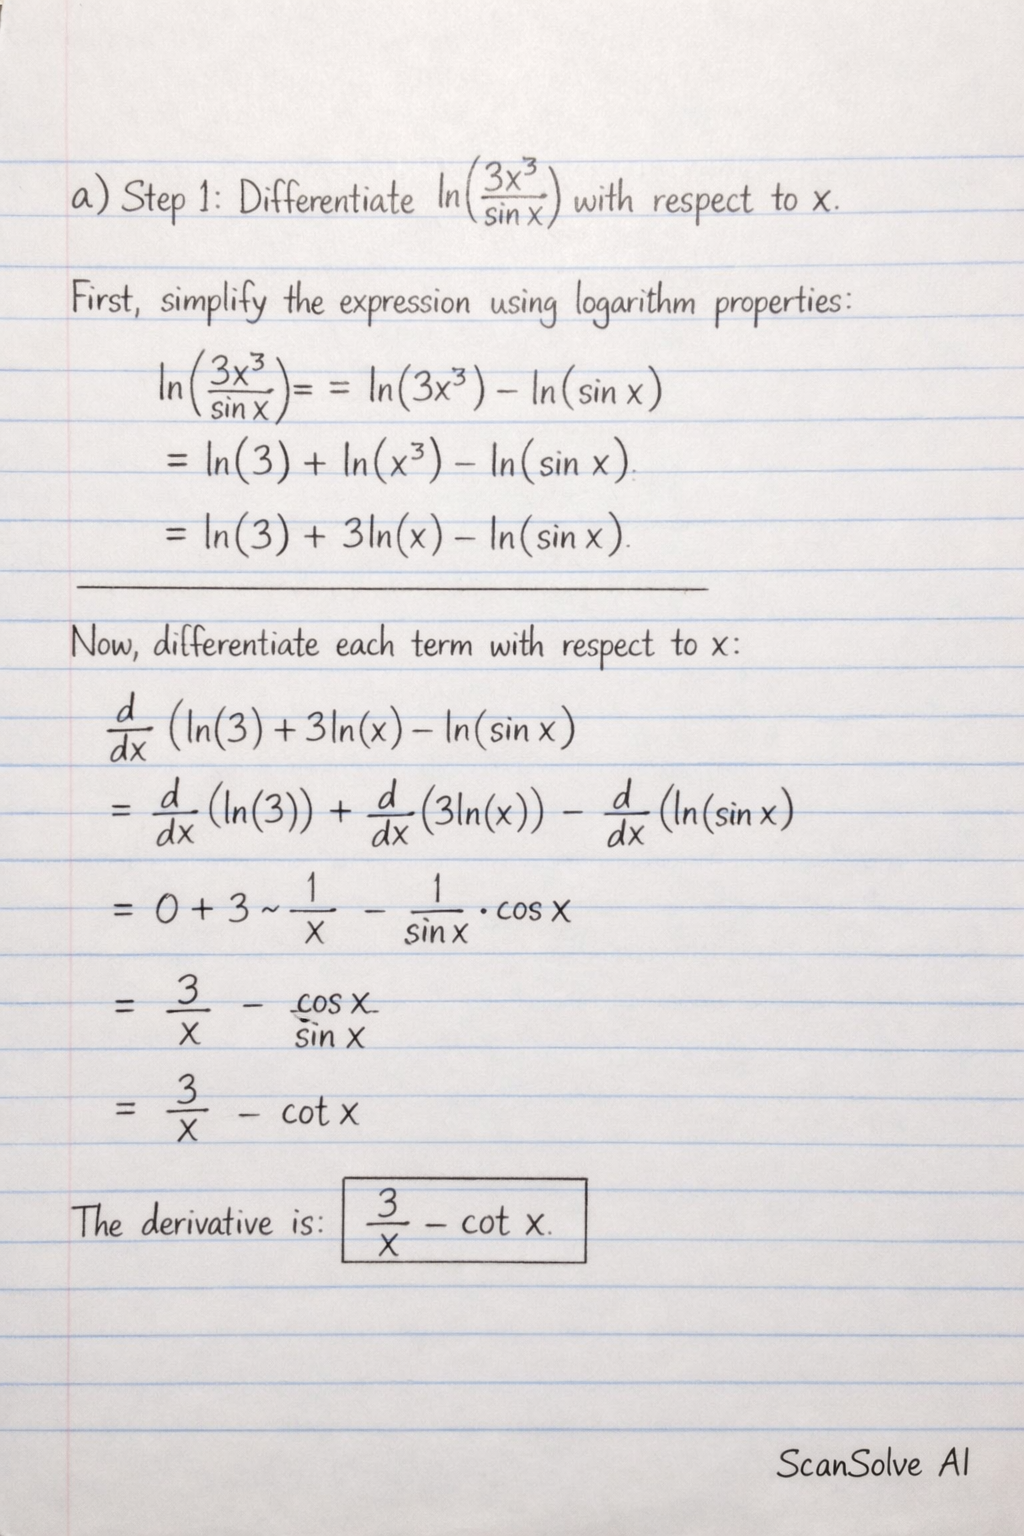 a) Step 1: Differentiate ln(3x³/sin x) with respect to x.
First, simplify the expression using logarithm properties:
ln(3x³/sin x)= = ln(3x³) − ln(sin x)
= ln(3) + ln(x³) − ln(sin x).
= ln(3) + 3ln(x) − ln(sin x).
Now, differentiate each term with respect to x:
d/dx (ln(3) + 3ln(x) − ln(sin x)
= d/dx (ln(3)) + d/dx (3ln(x)) − d/dx (ln(sin x)
= 0 + 3 ~ 1/x − 1/sin x · cos x
= 3/x − cos x/sin x
= 3/x − cot x
The derivative is: 3/x − cot x.
ScanSolve AI